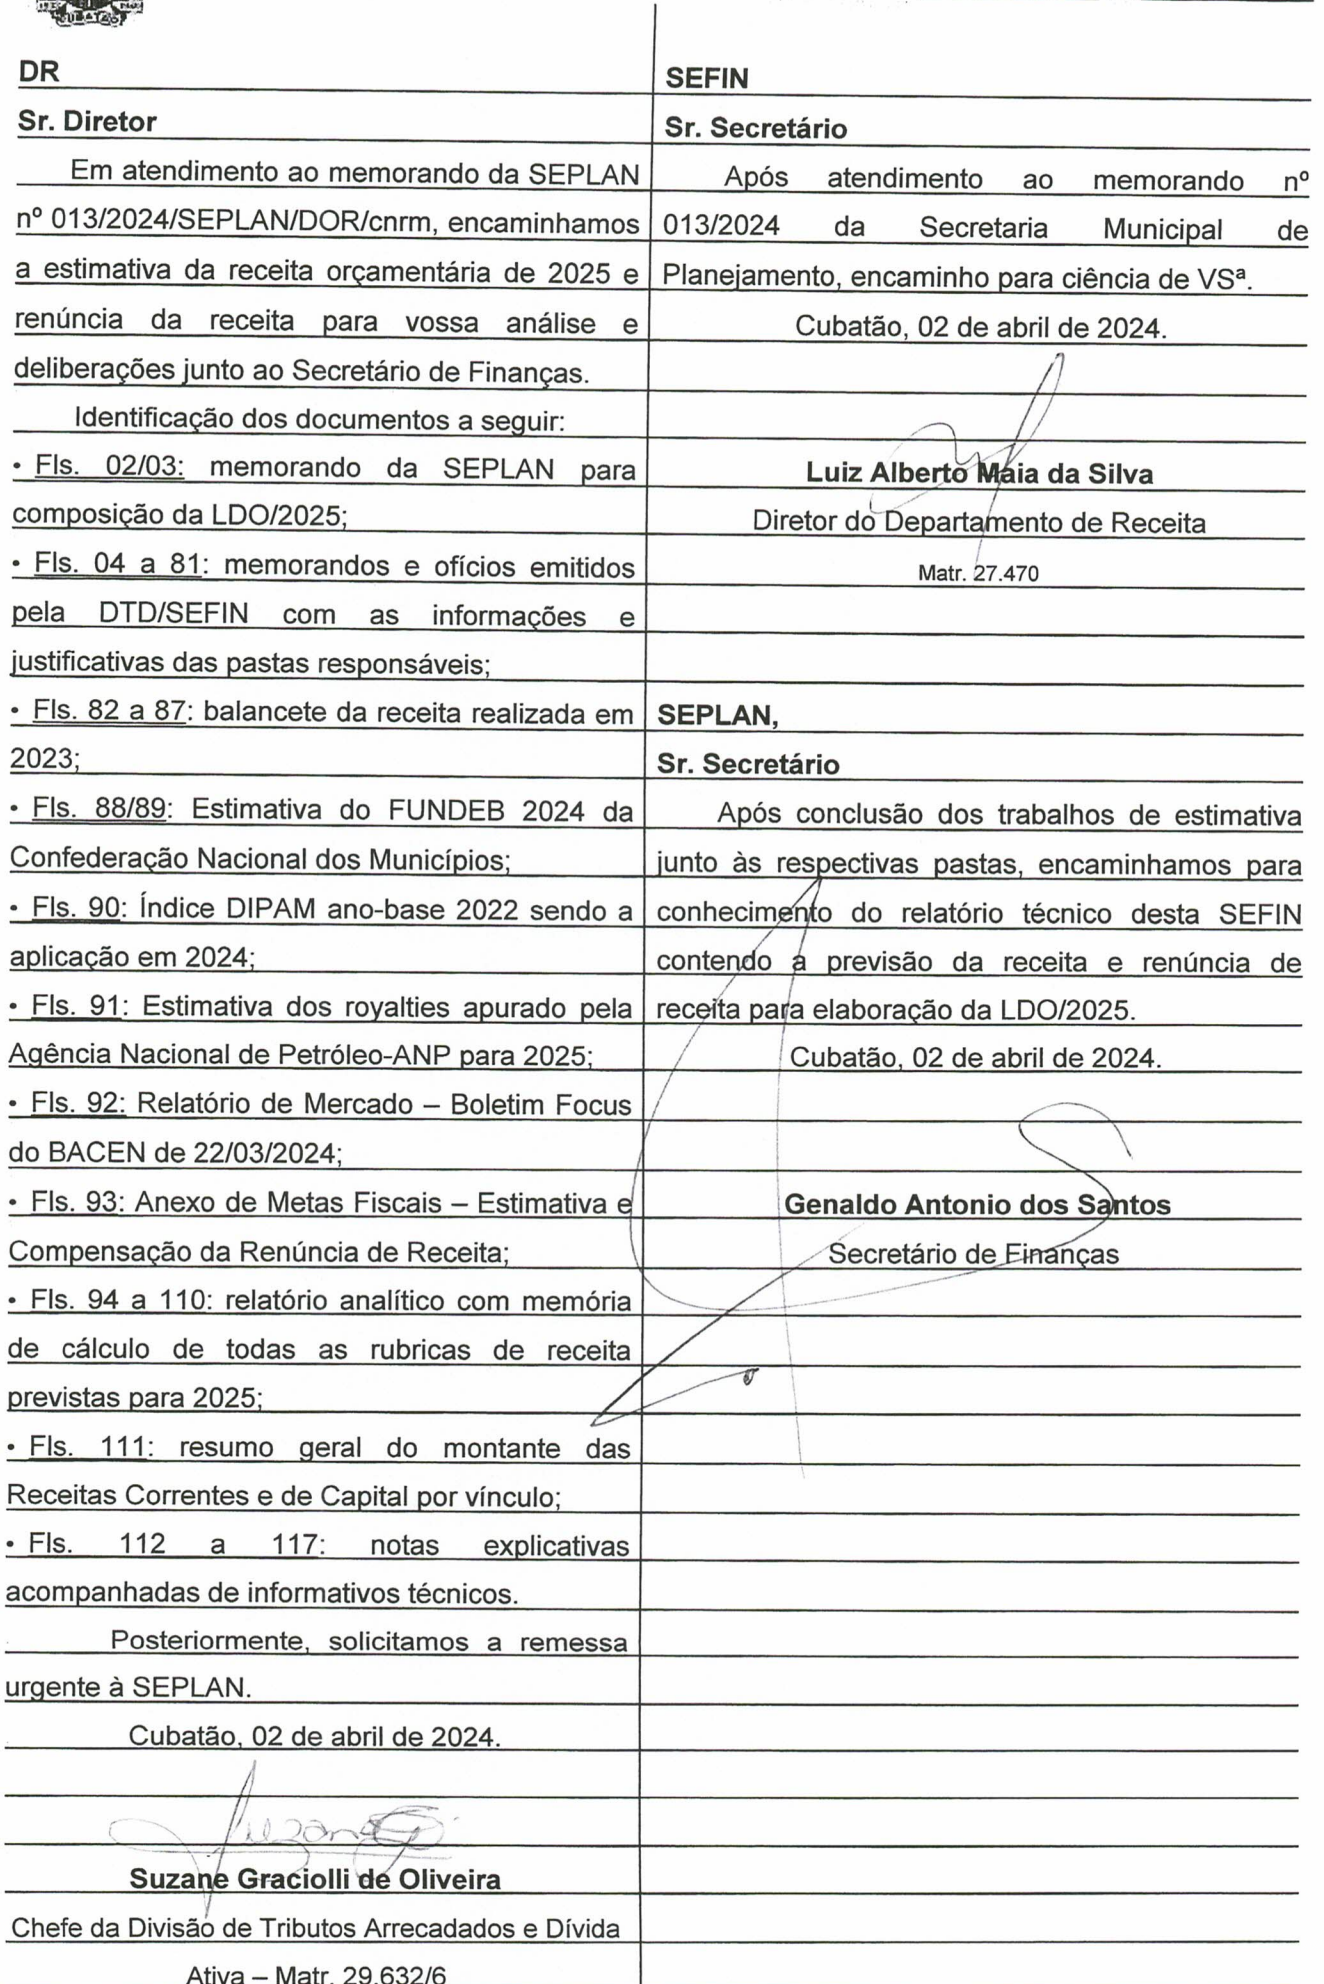 DR
Sr. Diretor
Em atendimento ao memorando da SEPLAN
nº 013/2024/SEPLAN/DOR/cnrm, encaminhamos
a estimativa da receita orçamentária de 2025 e
renúncia da receita para vossa análise e
deliberações junto ao Secretário de Finanças.
Identificação dos documentos a seguir:
• Fls. 02/03: memorando da SEPLAN para
composição da LDO/2025;
• Fls. 04 a 81: memorandos e ofícios emitidos
pela DTD/SEFIN com as informações e
justificativas das pastas responsáveis;
• Fls. 82 a 87: balancete da receita realizada em
2023;
• Fls. 88/89: Estimativa do FUNDEB 2024 da
Confederação Nacional dos Municípios;
• Fls. 90: Índice DIPAM ano-base 2022 sendo a
aplicação em 2024;
• Fls. 91: Estimativa dos royalties apurado pela
Agência Nacional de Petróleo-ANP para 2025;
• Fls. 92: Relatório de Mercado – Boletim Focus
do BACEN de 22/03/2024;
• Fls. 93: Anexo de Metas Fiscais – Estimativa e
Compensação da Renúncia de Receita;
• Fls. 94 a 110: relatório analítico com memória
de cálculo de todas as rubricas de receita
previstas para 2025;
• Fls. 111: resumo geral do montante das
Receitas Correntes e de Capital por vínculo;
• Fls. 112 a 117: notas explicativas
acompanhadas de informativos técnicos.
Posteriormente, solicitamos a remessa
urgente à SEPLAN.
Cubatão, 02 de abril de 2024.
Suzane Graciolli de Oliveira
Chefe da Divisão de Tributos Arrecadados e Dívida
Ativa – Matr. 29.632/6
SEFIN
Sr. Secretário
Após atendimento ao memorando nº
013/2024 da Secretaria Municipal de
Planejamento, encaminho para ciência de VSª.
Cubatão, 02 de abril de 2024.
Luiz Alberto Maia da Silva
Diretor do Departamento de Receita
Matr. 27.470
SEPLAN,
Sr. Secretário
Após conclusão dos trabalhos de estimativa
junto às respectivas pastas, encaminhamos para
conhecimento do relatório técnico desta SEFIN
contendo a previsão da receita e renúncia de
receita para elaboração da LDO/2025.
Cubatão, 02 de abril de 2024.
Genaldo Antonio dos Santos
Secretário de Finanças